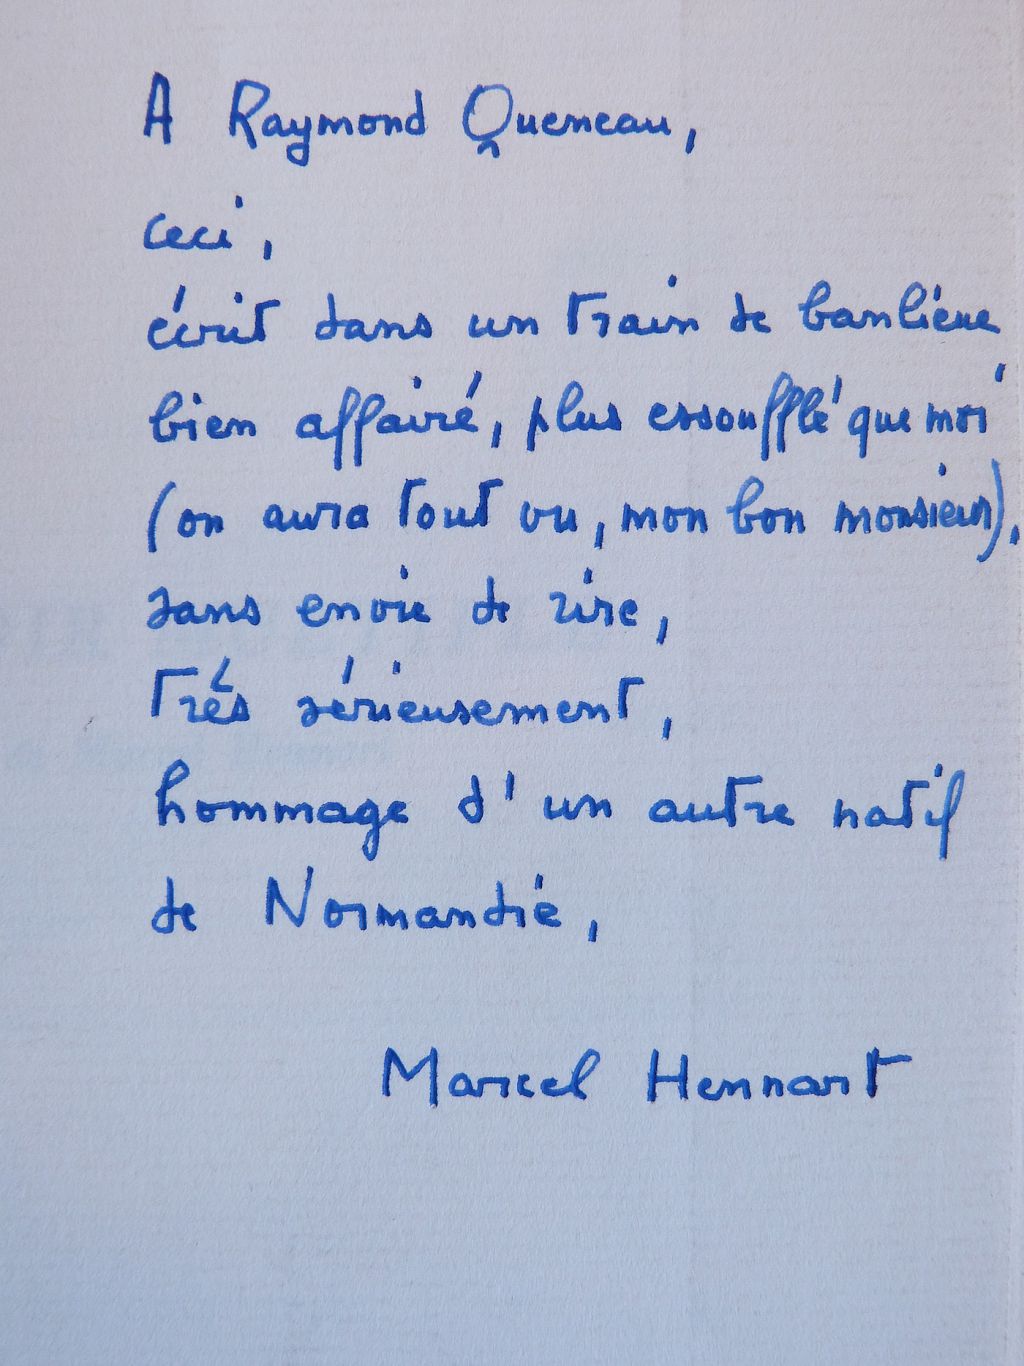 A Raymond Queneau,
ceci,
écrit dans un train de banlieue
bien affairé, plus essoufflé que moi
(on aura tout vu, mon bon monsieur),
sans envie de rire,
très sérieusement,
hommage d'un autre natif
de Normandie,
Marcel Hennart
de Marcel Hennart